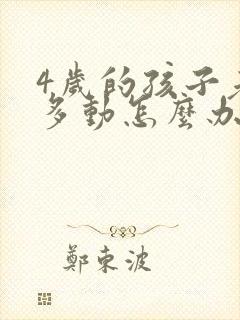 4歲的孩子
多動怎麼办
鄭東波